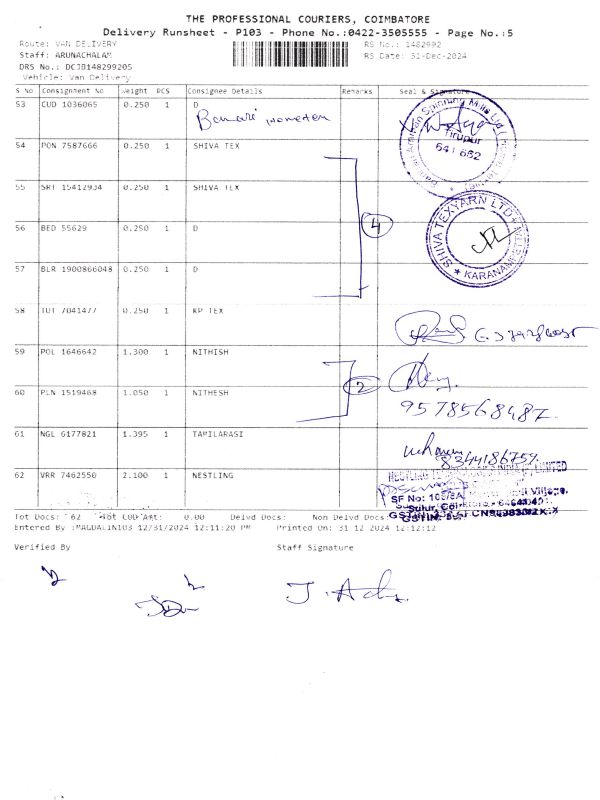 THE PROFESSIONAL COURIERS, COIMBATORE
Delivery Runsheet - P103 - Phone No.:0422-3505555 - Page No.:5
Route: VAN DELIVERY RS No.: 1482992
Staff: ARUNACHALAM RS Date: 31-Dec-2024
DRS No.: DCJB148299205
Vehicle: Van Delivery
S No Consignment No Weight PCS Consignee Details Remarks Seal & Signature
53 CUD 1036065 0.250 1 D
Tirupur
641 652
54 PON 7587666 0.250 1 SHIVA TEX
55 SRT 15412934 0.250 1 SHIVA TEX
SHIVA TEXYARN LTD
KARANAMPET
56 BED 55629 0.250 1 D
4
57 BLR 1900866048 0.250 1 D
58 TUT 7041477 0.250 1 KP TEX
59 POL 1646642 1.300 1 NITHISH
2
60 PLN 1519468 1.050 1 NITHESH
9578568487
61 NGL 6177821 1.395 1 TAMILARASI
8244186759
62 VRR 7462550 2.100 1 NESTLING
LIMITED
SF No: Village,
Tot Docs: 62 Tot COD Amt: 0.00 Delvd Docs: Non Delvd Docs:
Entered By :MAGDALIN103 12/31/2024 12:11:20 PM Printed On: 31 12 2024 12:12:12
Verified By Staff Signature